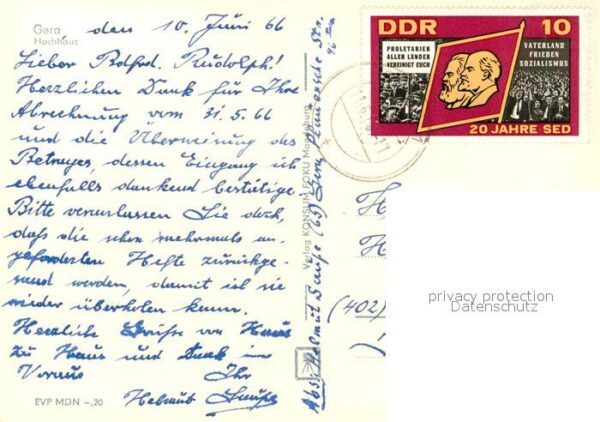 Gera
Hochhaus
den 10. Juni 66
Lieber Bolfrd. Rudolph!
Herzlichen Dank für Ihre
Abrechnung vom 31.5.66
und die Überweisung des
Betrages, dessen Eingang ich
ebenfalls dankend bestätige.
Bitte veranlassen Sie doch,
daß die schon mehrmals an-
geforderten Hefte zurückge-
sand werden, damit ich sie
wieder überholen kann.
Herzliche Grüße von Haus
zu Haus und Dank im
Voraus Ihr
Helmut
EVP MDN -,20
Verlag KONSUM FOKU Magdeburg
Abs. Helmut (65) Gera
DDR 10
PROLETARIER
ALLER LÄNDER
VEREINIGT EUCH
VATERLAND
FRIEDEN
SOZIALISMUS
20 JAHRE SED
H
H
(402)
privacy protection
Datenschutz